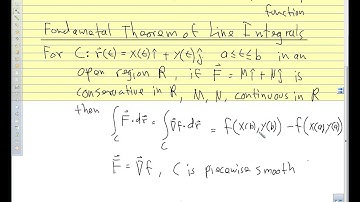 function
Fundametal Theorem of Line Integrals
For C: r⃗(t) = x(t)î + y(t)ĵ a≤t≤b in an
open region R, if F⃗ = Mî + Nĵ is
conservative in R, M, N, continuous in R
then ∫_C F⃗·dr⃗ = ∫_C ∇⃗f·dr⃗ = f(x(b), y(b)) - f(x(a), y(a))
F⃗ = ∇⃗f, C is piecewise smooth